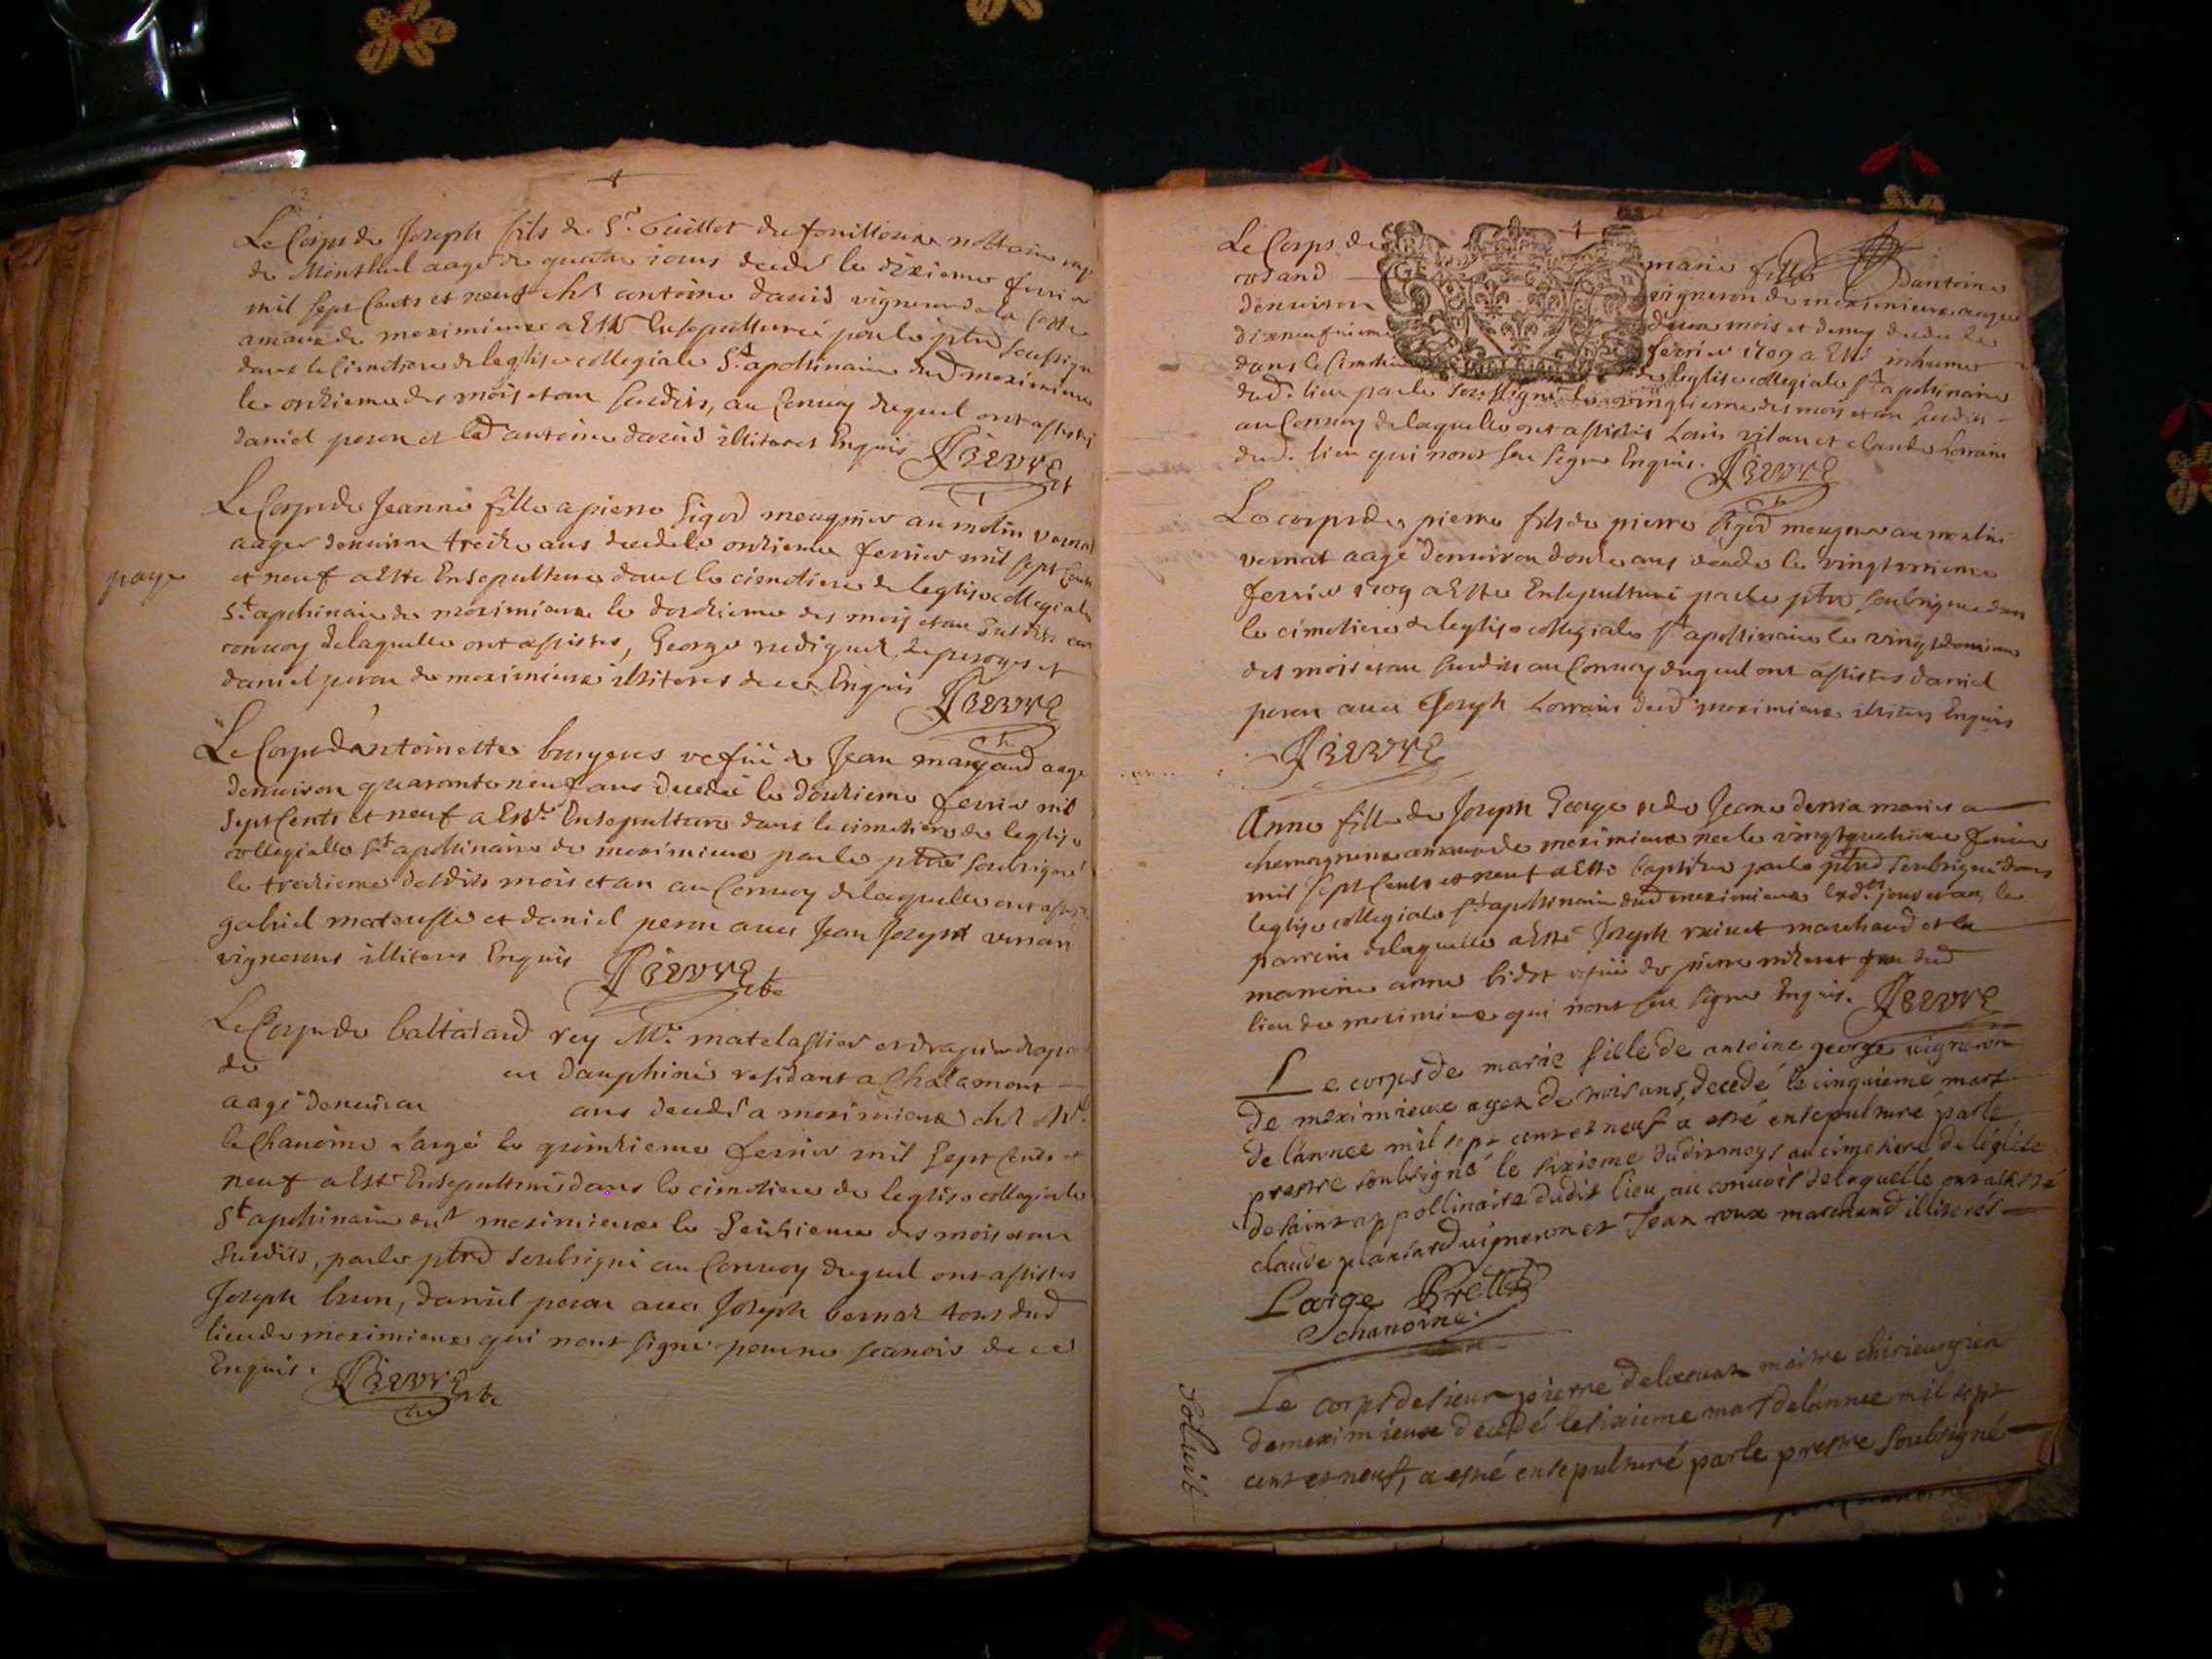 Le Corps de Joseph fils de Sr. Guillot du fouilloux nottaire
de Montluel aagé de quatre iours decedé le dixieme ferrier
mil sept Cents et neuf ches antoine dauid vigneron de la Coste
amaux de meximieux a Esté Ensepulturé par le ptre soussigné
dans le Cimetiere de leglise collegiale St. apollinaire dud meximieux
le onzieme des mois et an susdits, au Conuoy duquel ont assistés
daniel peron et led antoine dauid illiteres Enquis
Le Corps de Jeanne fille a pierre Sigod meugnier au molin vernat
aagee denuiron treize ans decedée le onzieme ferrier mil sept Cents
et neuf a Esté Ensepulturee dans le cimetiere de leglise collegiale
paye
St. apollinaire de meximieux le douzieme des mois et an susdits au
conuoy de laquelle ont assistés, George
daniel peron de meximieux illiteres de ce Enquis
Le Corps dantoinette vefue de Jean aagé
denuiron quarante neuf ans decedée le douzieme ferrier mil
sept Cents et neuf a Esté Ensepulturee dans le cimetiere de leglise
collegialle St. apollinaire de meximieux par le ptre soubsigné
le treizieme desdits mois et an au Conuoy de laquelle ont assisté
gabriel et daniel peron auec Jean Joseph
vignerons illiteres Enquis
Le Corps de baltasard rey Mr. matelassier
de en dauphiné residant a Chalamont
aagé denuiron ans decedé a meximieux ches Mr.
le Chanoine Largé le quinzieme ferrier mil Sept Cents et
neuf a Esté Ensepulturé dans le cimetiere de leglise collegialle
St. apollinaire dud meximieux le Seizieme des mois et an
susdits, par le ptre soubsigné au Conuoy duquel ont assistes
Joseph brun, daniel peron auec Joseph bernar tous dud
lieu de meximieux qui nont signé pour ne scauoir de ce
Enquis.
Le Corps de marie fille dantoine
vigneron de meximieux aagee
denuiron deux mois et demy decedee le
dixneufuieme ferrier 1709 a Esté inhumee
dans le Cimetiere de leglise collegiale St. apollinaire
dud. lieu par le soussigné le vingtieme des mois et an susdits
au Conuoy de laquelle ont assistés Louis et claude Lorrain
dud. lieu qui nont sceu signer Enquis.
Le corps de pierre fils de pierre Sigod meugnier au molin
vernat aagé denuiron douze ans decedé le vingtunieme
ferrier 1709 a Esté Ensepulturé par le ptre soubsigné dans
le cimetiere de leglise collegiale St. apollinaire le vingtdeuxieme
des mois et an susdits au Conuoy duquel ont assistes daniel
peron auec Joseph Lorrain dud meximieux illiteres Enquis
Anne fille de Joseph George et de Jeane mariés a
meximieux nee le vingtquatrieme ferrier
mil sept Cents et neuf a Esté baptisee par le ptre soubsigné dans
leglise collegiale St. apollinaire dud meximieux lesdts. jour et an, le
parrin de laquelle a Esté Joseph marchand et la
marrine anne bidot vefue de pierre dud
lieu de meximieux qui nont sceu signer Enquis.
Le corps de marie fille de antoine george uigneron
de meximieux agee de trois ans, decedé le cinquieme mars
de lánnee mil sept cent et neuf a esté ensepulturé par le
prestre soubsigné le sixiome dudit moys au cimetiere de léglise
de saint appollinaire dudit lieu, au conuois de laquelle ont assisté
claude plantard uigneron et Jean roux marchand illiterés
Large Prettre
chanoine.
Soluit
Le corps de sieur pierre maitre chirieurgien
de meximieux decedé le sixieme mars de lánnee mil sept
cent et neuf, a esté ensepulturé par le prestre soubsigné